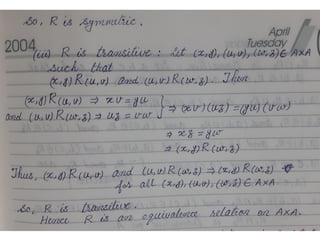 So, R is symmetric.
2004
April
Tuesday
(iii) R is transitive : Let (x,y),(u,v),(w,z) ∈ A×A
such that
(x,y)R(u,v) and (u,v)R(w,z). Then
(x,y)R(u,v) ⇒ xv = yu
and (u,v)R(w,z) ⇒ uz = vw } ⇒ (xv)(uz) = (yu)(vw)
⇒ xz = yw
⇒ (x,y)R(w,z)
Thus, (x,y)R(u,v) and (u,v)R(w,z) ⇒ (x,y)R(w,z)
for all (x,y),(u,v),(w,z) ∈ A×A
So, R is transitive.
Hence R is an equivalence relation on A×A.